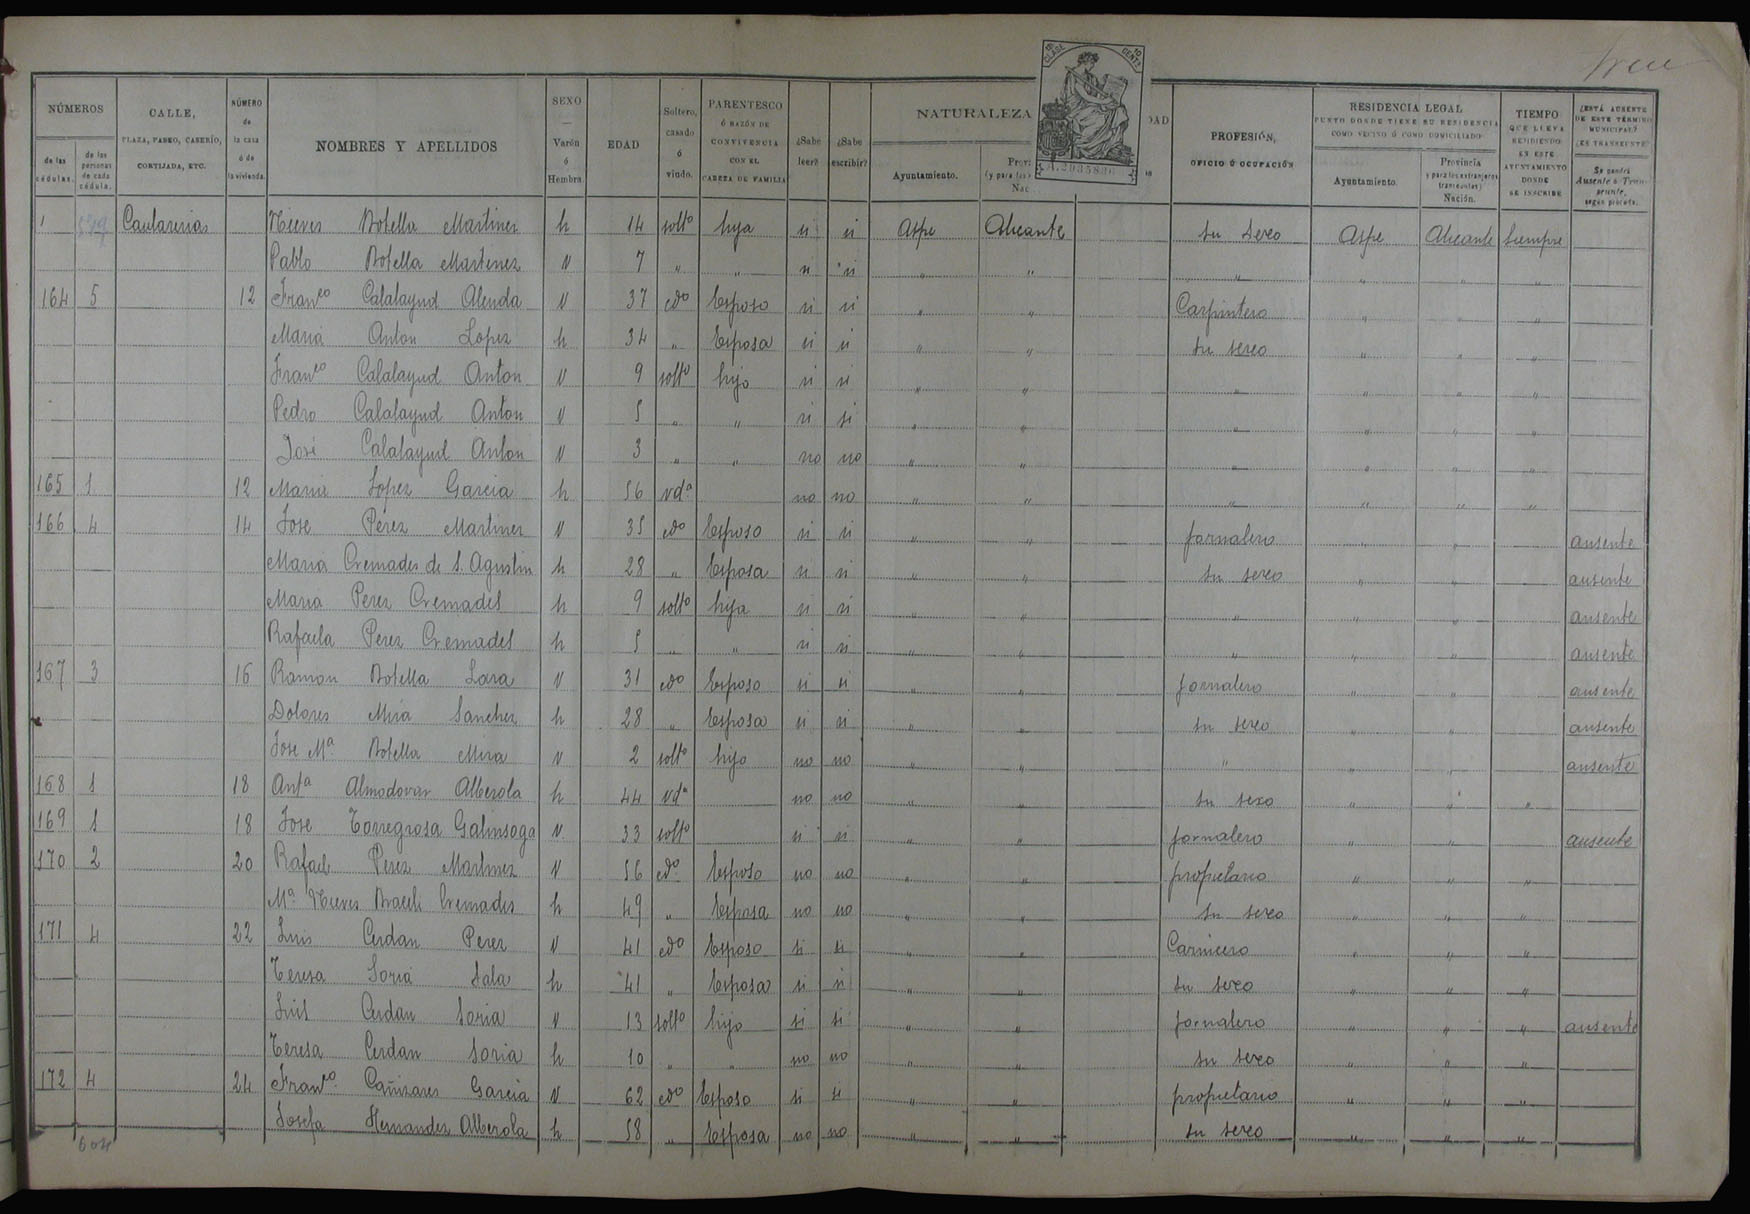 NÚMEROS
de las cédulas.
de las personas de cada cédula.
CALLE, PLAZA, PASEO, CASERÍO, CORTIJADA, ETC.
NÚMERO de la casa ó de la vivienda.
NOMBRES Y APELLIDOS
SEXO — Varón ó Hembra.
EDAD
Soltero, casado ó viudo.
PARENTESCO Ó RAZÓN DE CONVIVENCIA CON EL CABEZA DE FAMILIA
¿Sabe leer?
¿Sabe escribir?
NATURALEZA
Ayuntamiento.
DAD
18ª CLASE 10 CENTS
PROFESIÓN, OFICIO Ó OCUPACIÓN
RESIDENCIA LEGAL
PUNTO DONDE TIENE SU RESIDENCIA COMO VECINO Ó COMO DOMICILIADO
Ayuntamiento.
Provincia (y para los extranjeros transeuntes) Nación.
TIEMPO QUE LLEVA RESIDIENDO EN ESTE AYUNTAMIENTO DONDE SE INSCRIBE
¿ESTÁ AUSENTE DE ESTE TÉRMINO MUNICIPAL? ¿ES TRANSEUNTE?
Se pondrá Ausente ó Transeunte, según proceda.
1 Cantarerias Nieves Botella Martinez h 14 soltº hija si si Aspe Alicante su sexo Aspe Alicante Siempre
Pablo Botella Martinez V 7 " " si si " " " " " "
164 5 12 Franco Calalayud Alenda V 37 cdº Esposo si si " " Carpintero " " "
Maria Anton Lopez h 34 " Esposa si si " " su sexo " " "
Franco Calalayud Anton V 9 soltº hijo si si " " " " " "
Pedro Calalayud Anton V 5 " " si si " " " " " "
José Calalayud Anton V 3 " " no no " " " " " "
165 1 12 Maria Lopez Garcia h 56 vdª no no " " " " " "
166 4 14 Jose Perez Martinez V 35 cdº Esposo si si " " jornalero " " ausente
Maria Cremades de S. Agustin h 28 " Esposa si si " " su sexo " " ausente
Maria Perez Cremades h 9 soltº hija si si " " " " " ausente
Rafaela Perez Cremades h 5 " " si si " " " " " ausente
167 3 16 Ramon Botella Lara V 31 cdº Esposo si si " " jornalero " " ausente
Dolores Mira Sanchez h 28 " Esposa si si " " su sexo " " ausente
Jose Mª Botella Mira V 2 soltº hijo no no " " " " " ausente
168 1 18 Antª Almodovar Alberola h 44 vdª no no " " su sexo " " "
169 1 18 Jose Torregrosa Galinsoga V 33 soltº si si " " jornalero " " ausente
170 2 20 Rafael Perez Martinez V 56 cdº Esposo no no " " propietario " " "
Mª Nieves Cremades h 49 " Esposa no no " " su sexo " " "
171 4 22 Luis Cerdan Perez V 41 cdº Esposo si si " " Carnicero " " "
Teresa Soria Sala h 41 " Esposa si si " " su sexo " " "
Luis Cerdan Soria V 13 soltº hijo si si " " jornalero " " " ausente
Teresa Cerdan Soria h 10 " " no no " " su sexo " " "
172 4 24 Franco Cañizares Garcia V 62 cdº Esposo si si " " propietario " " "
Josefa Hernandez Alberola h 58 " Esposa no no " " su sexo " " "
604